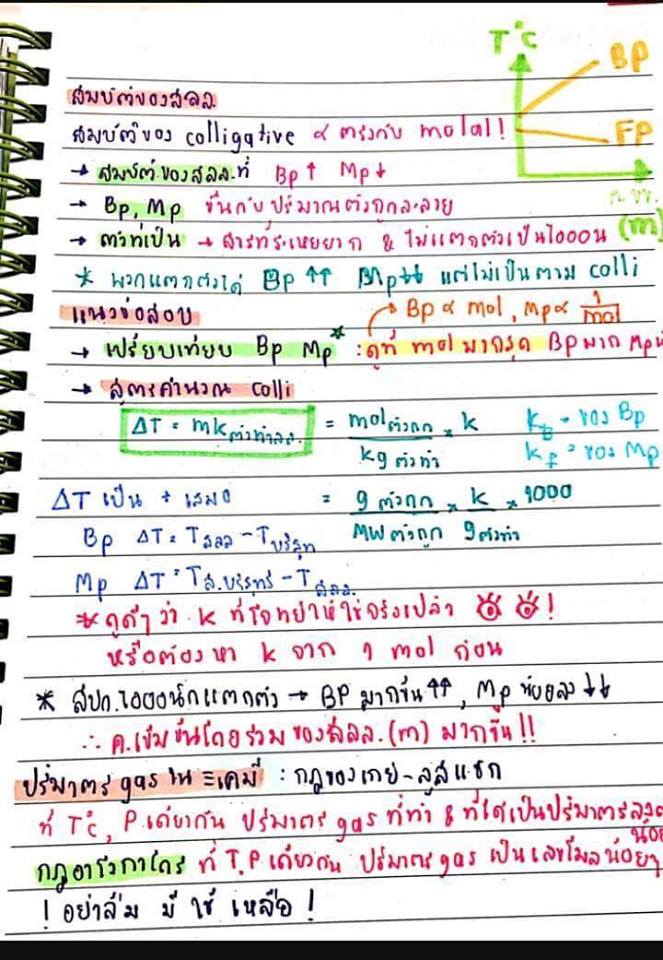 T°C
BP
FP
ค. ขข.
(m)
สมบัติของสลล.
สมบัติของ colligative ∝ ตรงกับ molal!
→ สมบัติของสลล.ที่ Bp↑ Mp↓
→ Bp, Mp ขึ้นกับปริมาณตัวถูกละลาย
→ ตัวที่เป็น → สารที่ระเหยยาก & ไม่แตกตัวเป็นไอออน
* พวกแตกตัวได้ Bp↑↑ Mp↓↓ แต่ไม่เป็นตาม colli
แนวข้อสอบ → Bp ∝ mol, Mp ∝ 1/mol
→ เปรียบเทียบ Bp Mp* : ดูที่ mol มากสุด Bp มาก Mp
→ สูตรคำนวณ colli
ΔT = mk ตัวทำลล. = mol ตัวถูก / kg ตัวทำ × k
k_b - ของ Bp
k_f = ของ Mp
ΔT เป็น + เสมอ = g ตัวถูก / MW ตัวถูก × k / g ตัวทำ × 1000
Bp ΔT = T สลล - T บริสุท
Mp ΔT = T ส.บริสุทธิ์ - T สลล.
* ดูดีๆ ว่า k ที่โจทย์ให้ใช่จริงเปล่า !
หรือต้องหา k จาก 1 mol ก่อน
* สปก.ไอออนิกแตกตัว → BP มากขึ้น↑↑, Mp น้อยลง↓↓
∴ ค.เข้มข้นโดยรวม ของสลล. (m) มากขึ้น!!
ปริมาตร gas ใน เคมี : กฎของเกย์-ลูสแซก
ที่ T°C, P เดียวกัน ปริมาตร gas ที่ทำ & ที่ได้เป็นปริมาตรลงตัว
น้อย
กฎอาโวกาโดร ที่ T.P เดียวกัน ปริมาตร gas เป็นเลขโมลน้อยๆ
! อย่าลืม มี ใช้ เหลือ !